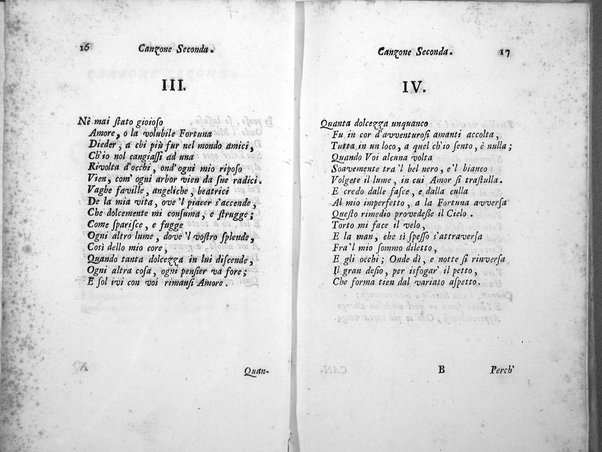 16 Canzone Seconda.
III.
Nè mai stato gioioso
Amore, o la volubile Fortuna
Dieder, a chi più fur nel mondo amici,
Ch'io nol cangiassi ad una
Rivolta d'occhi, ond'ogni mio riposo
Vien, com'ogni arbor vien da sue radici.
Vaghe faville, angeliche, beatrici
De la mia vita, ove 'l piacer s'accende,
Che dolcemente mi consuma, e strugge;
Come sparisce, e fugge
Ogni altro lume, dove 'l vostro splende,
Così dello mio core,
Quando tanta dolcezza in lui discende,
Ogni altra cosa, ogni pensier va fore;
E sol ivi con voi rimansi Amore.
Quan-
Canzone Seconda. 17
IV.
Quanta dolcezza unquanco
Fu in cor d'avventurosi amanti accolta,
Tutta in un loco, a quel ch'io sento, è nulla;
Quando Voi alcuna volta
Soavemente tra 'l bel nero, e 'l bianco
Volgete il lume, in cui Amor si trastulla.
E credo dalle fasce, e dalla culla
Al mio imperfetto, a la Fortuna avversa
Questo rimedio provedesse il Cielo.
Torto mi face il velo,
E la man, che sì spesso s'attraversa
Fra 'l mio sommo diletto,
E gli occhi; Onde dì, e notte si rinversa
Il gran desio, per isfogar' il petto,
Che forma tien dal variato aspetto.
B Perch'